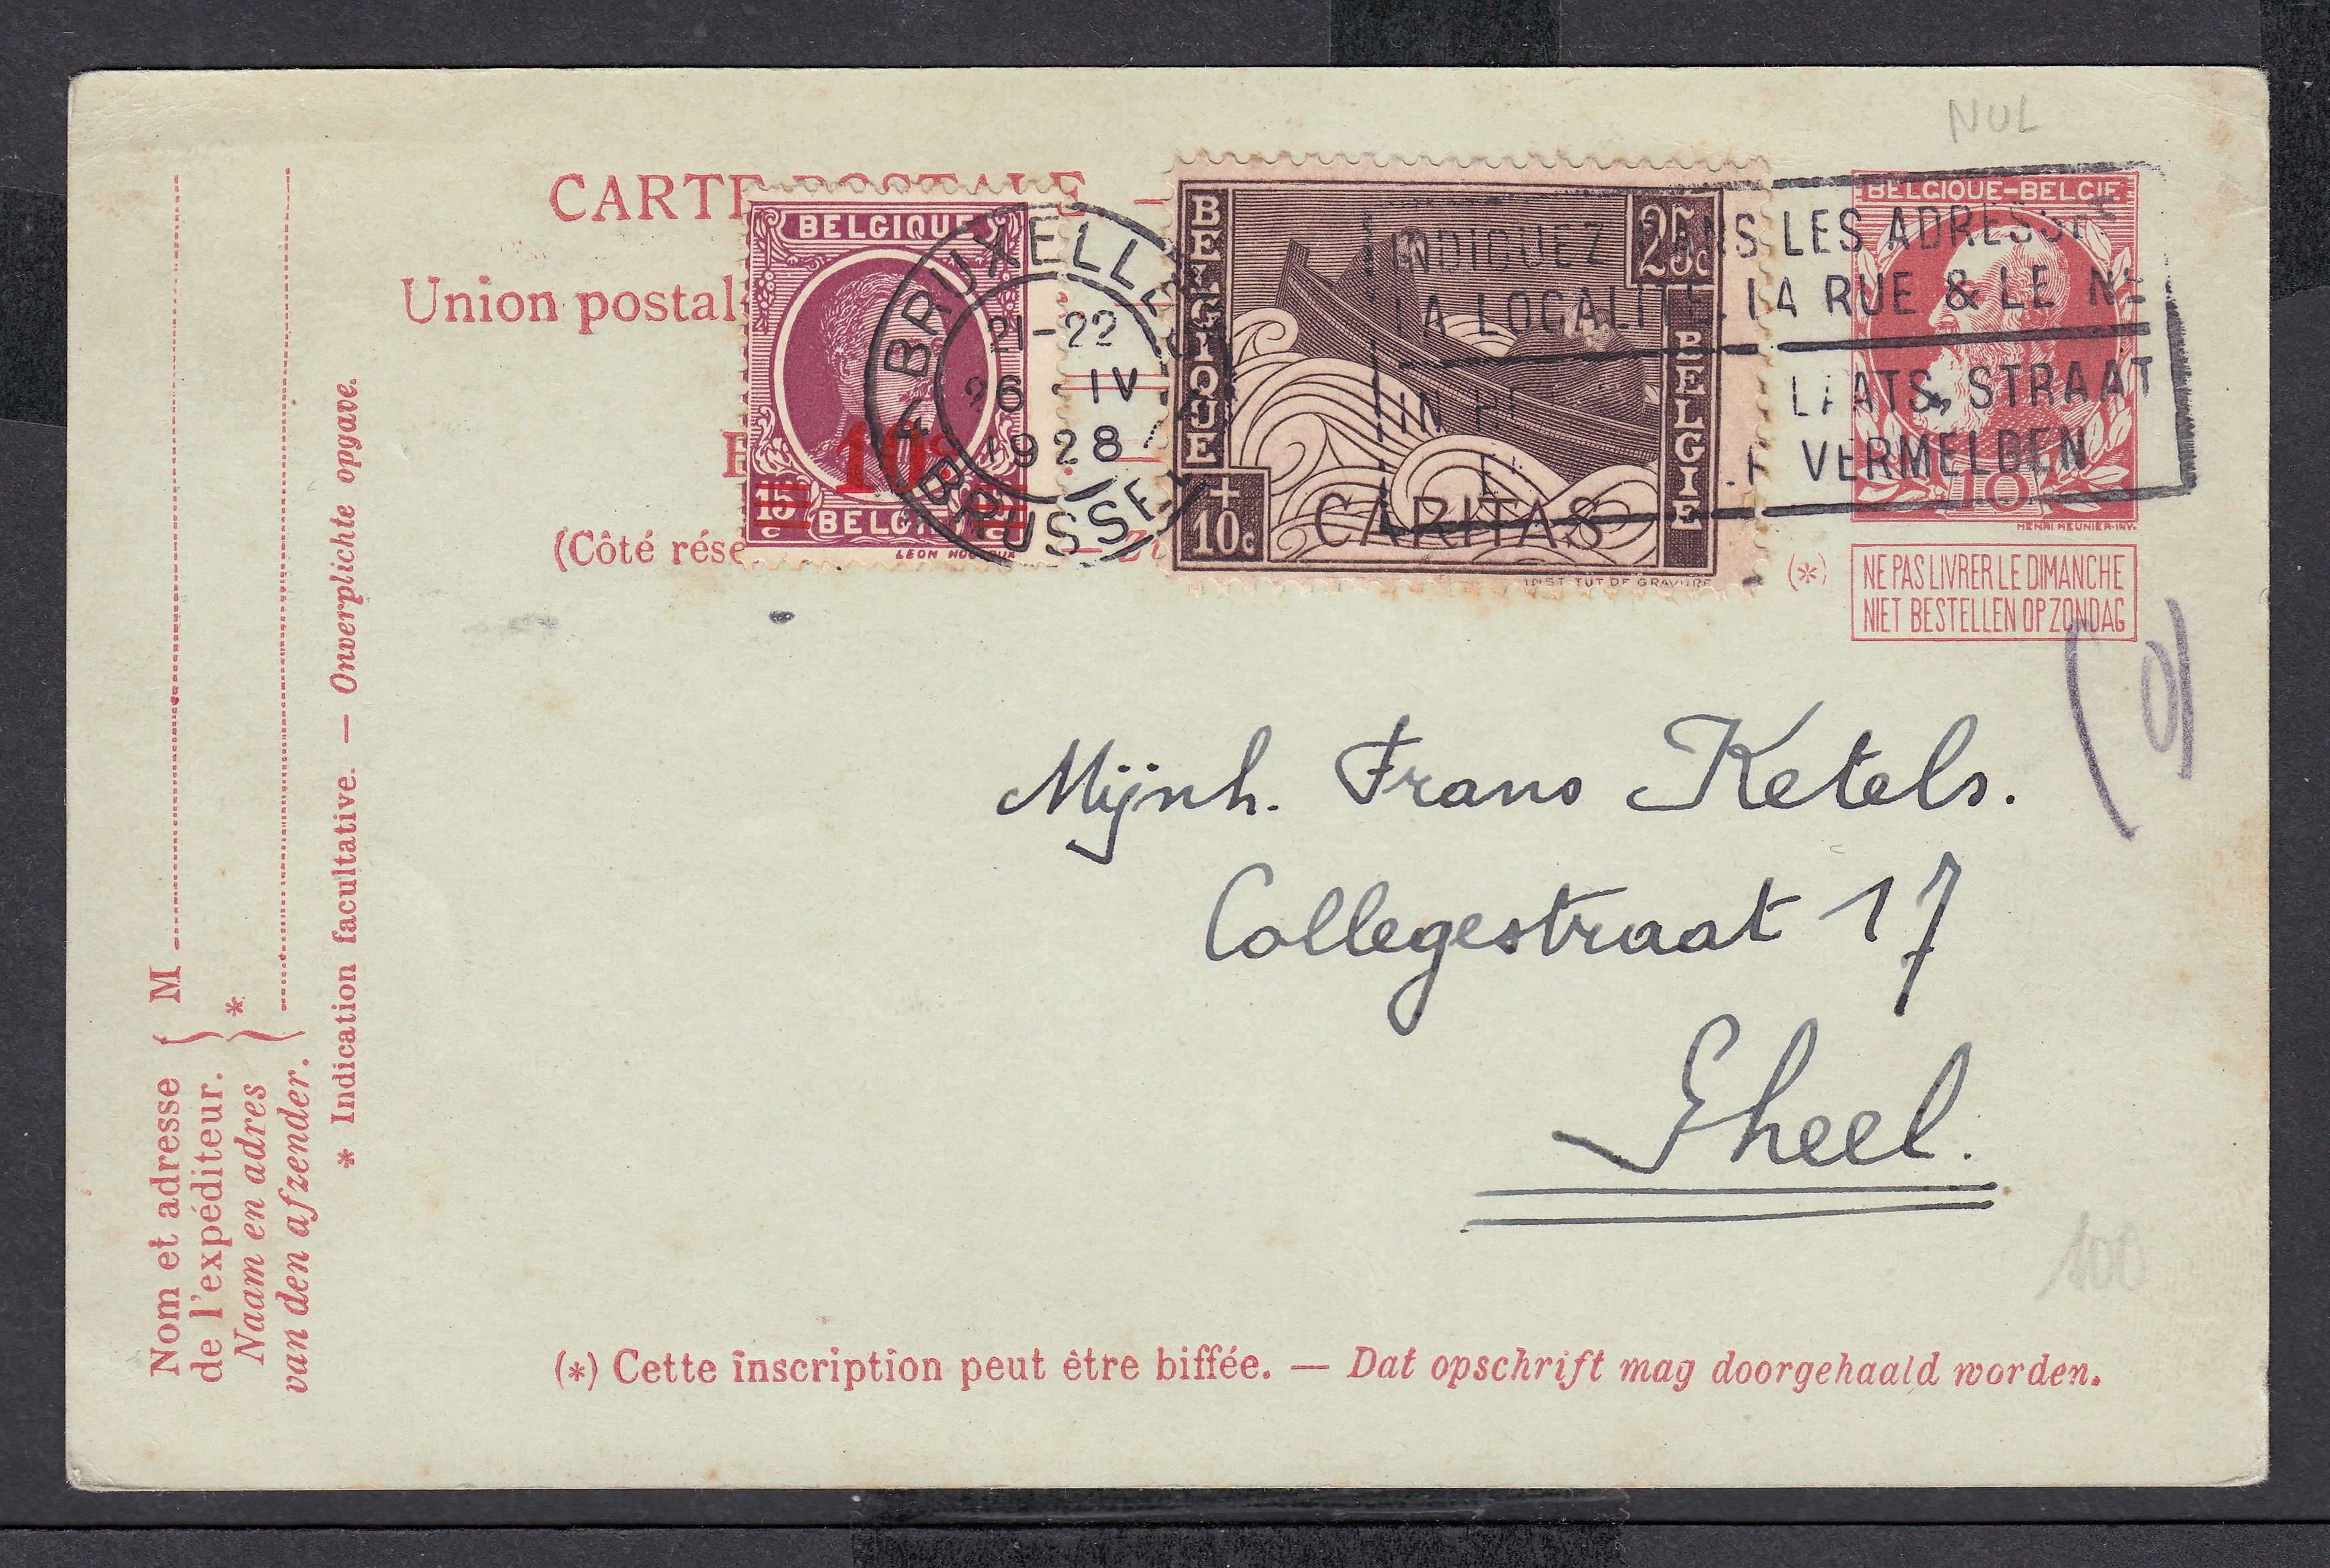 NUL
CARTE POSTALE —
Union postal
(Côté rése
BELGIQUE
10c
15 c
BELGIË
LEON HOUYOUX
4 BRUXELLES 4
21-22
26 - IV
1928
BRUSSEL
BELGIQUE
BELGIE
25c
+
10c
CARITAS
INSTITUT DE GRAVURE
INDIQUEZ DANS LES ADRESSE
LA LOCALITE, LA RUE & LE No
IN HE LAATS, STRAAT
VERMELDEN
BELGIQUE-BELGIË
10
HENRI MEUNIER-INV.
(*)
NE PAS LIVRER LE DIMANCHE
NIET BESTELLEN OP ZONDAG
Mijnh. Frans Ketels.
Collegestraat 17
Gheel.
100
(*) Cette inscription peut être biffée. — Dat opschrift mag doorgehaald worden.
Nom et adresse
de l'expéditeur.
Naam en adres
van den afzender.
M
*
* Indication facultative. — Onverplichte opgave.